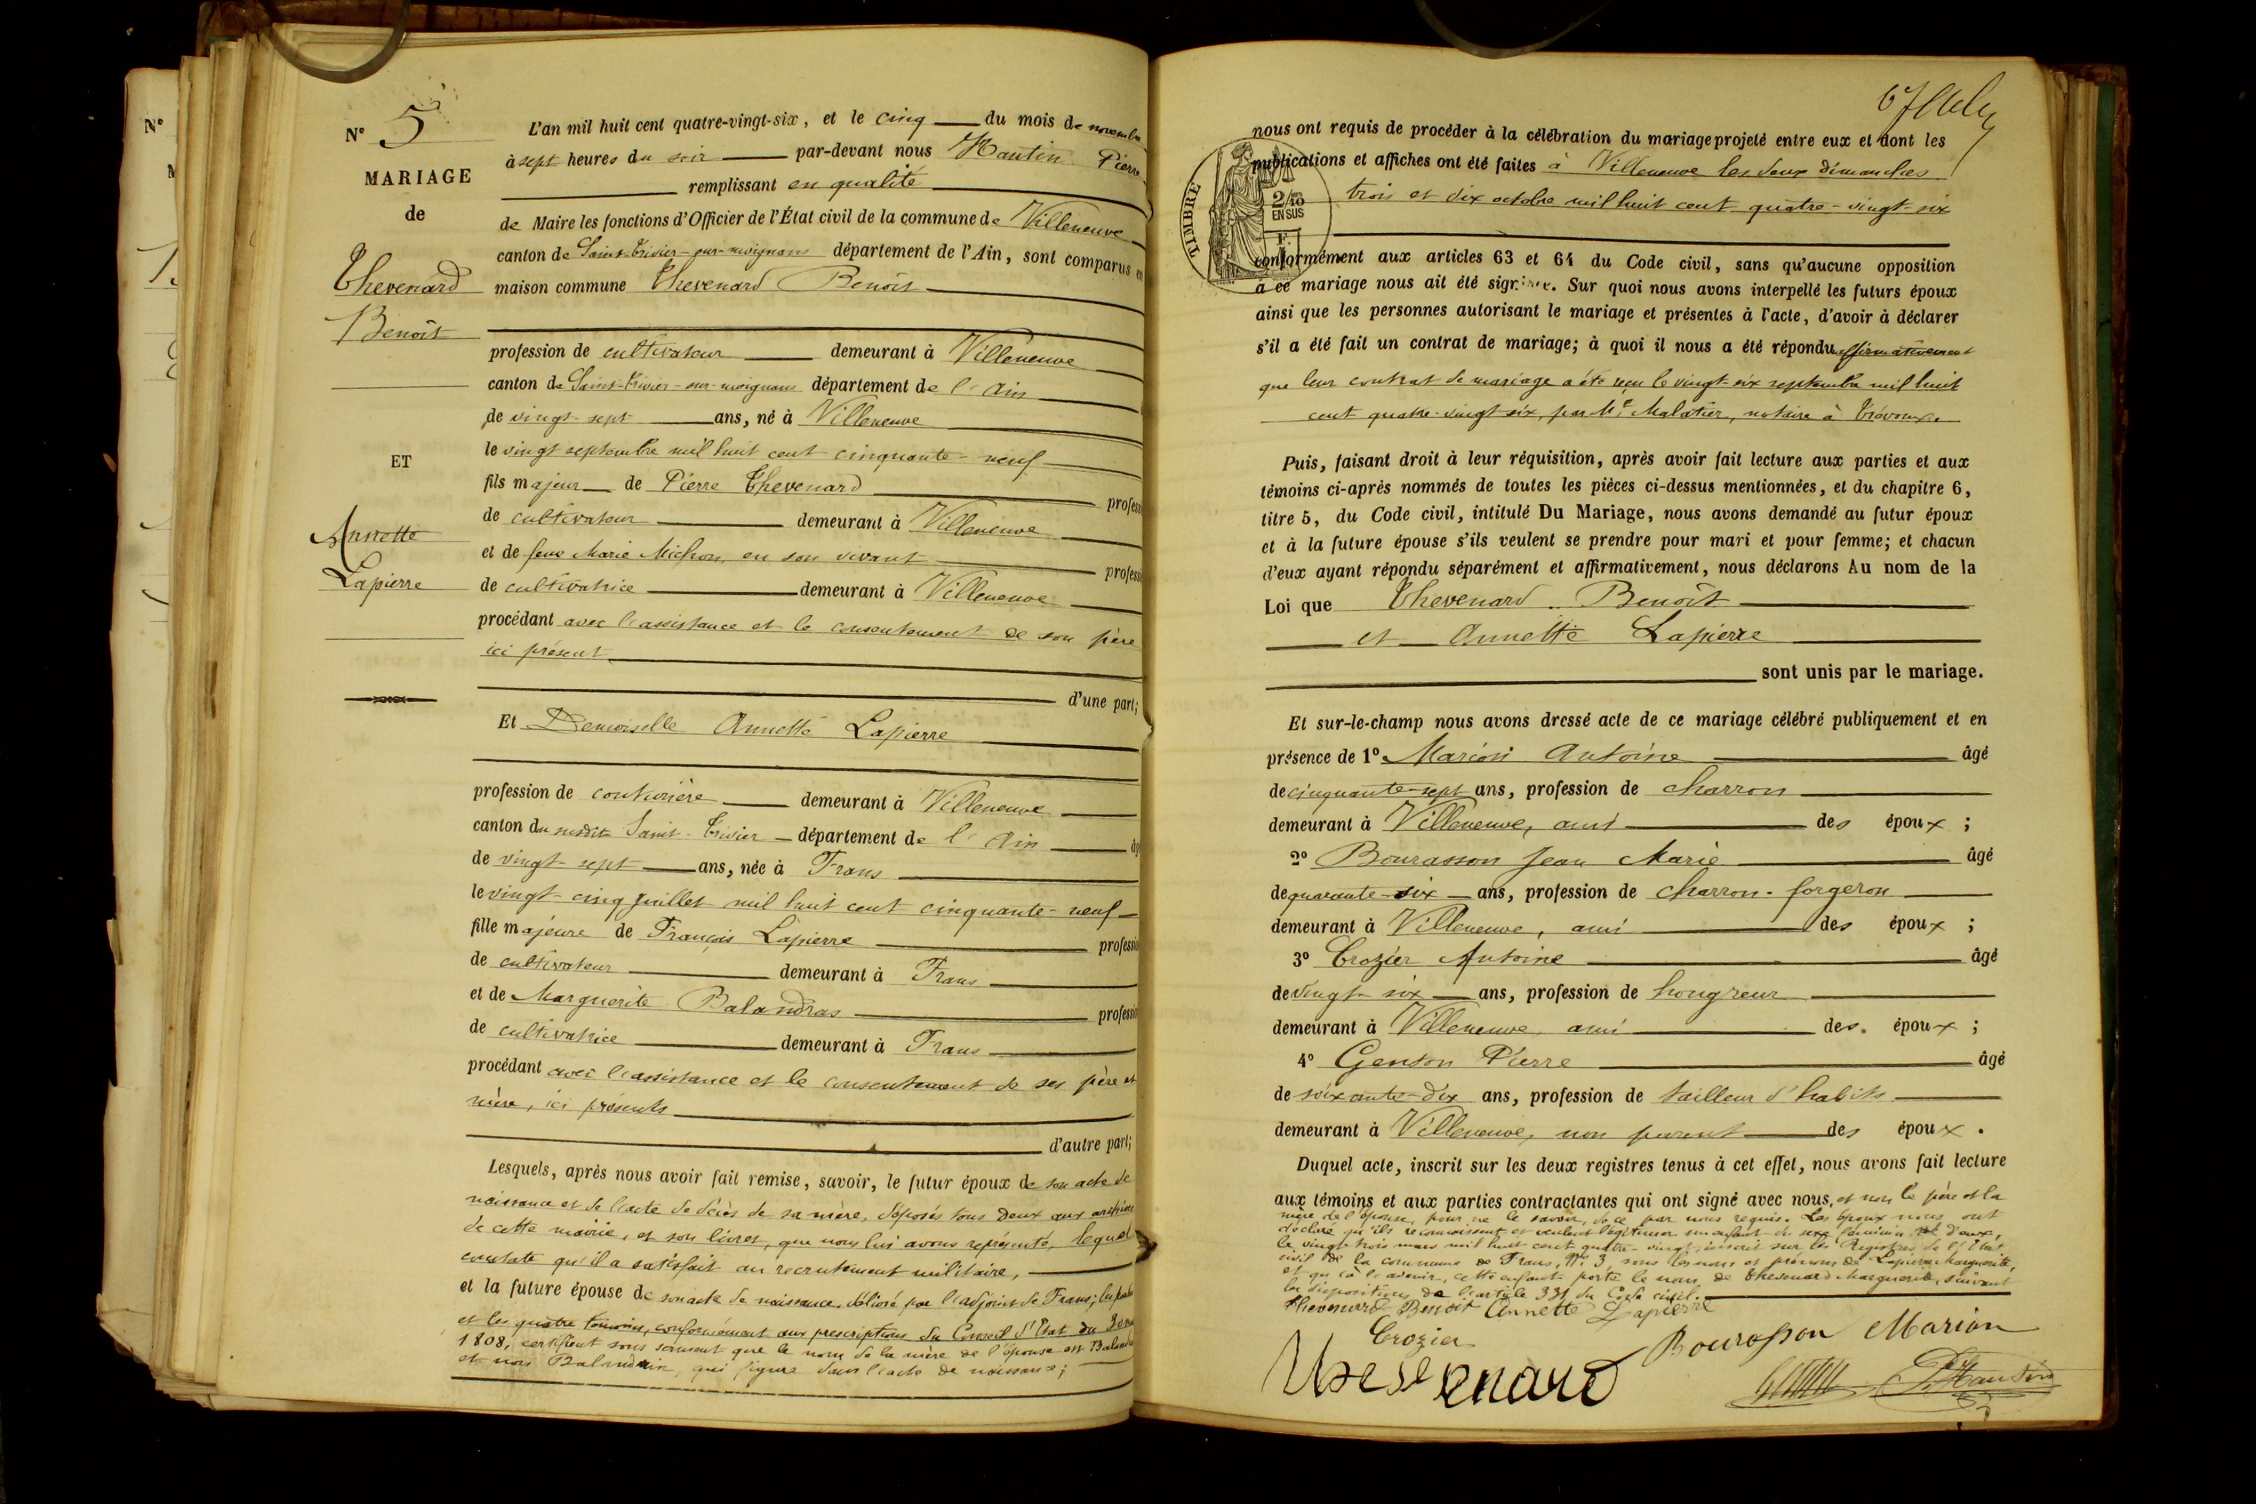 N° 5
MARIAGE
de
Thevenard
Benoît
ET
Annette
Lapierre
L'an mil huit cent quatre-vingt-six, et le cinq du mois de novembre
à sept heures du soir par-devant nous Hantin Pierre
remplissant en qualité
de Maire les fonctions d'Officier de l'État civil de la commune de Villeneuve
canton de Saint-Trivier-sur-moignans département de l'Ain, sont comparus en
maison commune Thevenard Benoît
profession de cultivateur demeurant à Villeneuve
canton de Saint-Trivier-sur-moignans département de l'Ain
de vingt-sept ans, né à Villeneuve
le vingt septembre mil huit cent cinquante-neuf
fils majeur de Pierre Thevenard profess
de cultivateur demeurant à Villeneuve
et de feue Marie Michon, en son vivant profess
de cultivatrice demeurant à Villeneuve
procédant avec l'assistance et le consentement de son père
ici présent
d'une part;
Et Demoiselle Annette Lapierre
profession de couturière demeurant à Villeneuve
canton du susdit Saint-Trivier département de l'Ain
de vingt-sept ans, née à Frans
le vingt-cinq juillet mil huit cent cinquante-neuf
fille majeure de François Lapierre professio
de cultivateur demeurant à Frans
et de Marguerite Balandras professio
de cultivatrice demeurant à Frans
procédant avec l'assistance et le consentement de ses père et
mère, ici présents
d'autre part;
Lesquels, après nous avoir fait remise, savoir, le futur époux de son acte de
naissance et de l'acte de décès de sa mère, déposés tous deux aux archives
de cette mairie, et son livret, que nous lui avons représenté, lequel
constate qu'il a satisfait au recrutement militaire,
et la future épouse de son acte de naissance, délivré par l'adjoint de Frans;
et les quatre témoins, conformément aux prescriptions du Conseil d'État du
1808, certifient sous serment que le nom de la mère de l'épouse est
et non Balandrin, qui figure dans l'acte de naissance;
TIMBRE
2/10
EN SUS
nous ont requis de procéder à la célébration du mariage projeté entre eux et dont les
publications et affiches ont été faites à Villeneuve les deux dimanches
trois et dix octobre mil huit cent quatre-vingt-six
conformément aux articles 63 et 64 du Code civil, sans qu'aucune opposition
à ce mariage nous ait été signifiée. Sur quoi nous avons interpellé les futurs époux
ainsi que les personnes autorisant le mariage et présentes à l'acte, d'avoir à déclarer
s'il a été fait un contrat de mariage; à quoi il nous a été répondu affirmativement
que leur contrat de mariage a été reçu le vingt-six septembre mil huit
cent quatre-vingt-six, par Me Malatier, notaire à Trévoux.
Puis, faisant droit à leur réquisition, après avoir fait lecture aux parties et aux
témoins ci-après nommés de toutes les pièces ci-dessus mentionnées, et du chapitre 6,
titre 5, du Code civil, intitulé Du Mariage, nous avons demandé au futur époux
et à la future épouse s'ils veulent se prendre pour mari et pour femme; et chacun
d'eux ayant répondu séparément et affirmativement, nous déclarons Au nom de la
Loi que Thevenard Benoît
et Annette Lapierre
sont unis par le mariage.
Et sur-le-champ nous avons dressé acte de ce mariage célébré publiquement et en
présence de 1° Marion Antoine âgé
de cinquante-sept ans, profession de charron
demeurant à Villeneuve, ami des époux ;
2° Bourasson Jean Marie âgé
de quarante-six ans, profession de charron-forgeron
demeurant à Villeneuve, ami des époux ;
3° Crozier Antoine âgé
de vingt-six ans, profession de hongreur
demeurant à Villeneuve, ami des époux ;
4° Genton Pierre âgé
de soixante-dix ans, profession de tailleur d'habits
demeurant à Villeneuve, non parent des époux.
Duquel acte, inscrit sur les deux registres tenus à cet effet, nous avons fait lecture
aux témoins et aux parties contractantes qui ont signé avec nous, et non le père et la
mère de l'épouse, pour ne le savoir, de ce par nous requis. Les époux nous ont
déclaré qu'ils reconnaissent et veulent légitimer un enfant de sexe féminin né d'eux,
le vingt-trois mars mil huit cent quatre-vingt, inscrit sur les Registres de l'État
civil de la commune de Frans, N° 3, sous les nom et prénom de Lapierre Marguerite,
et qu'à l'avenir, cette enfant porte le nom de Thevenard Marguerite, suivant
les dispositions de l'article 331 du Code civil.
Thevenard Benoit Annette Lapierre
Crozier Bourasson Marion
Thevenard P. Hantin